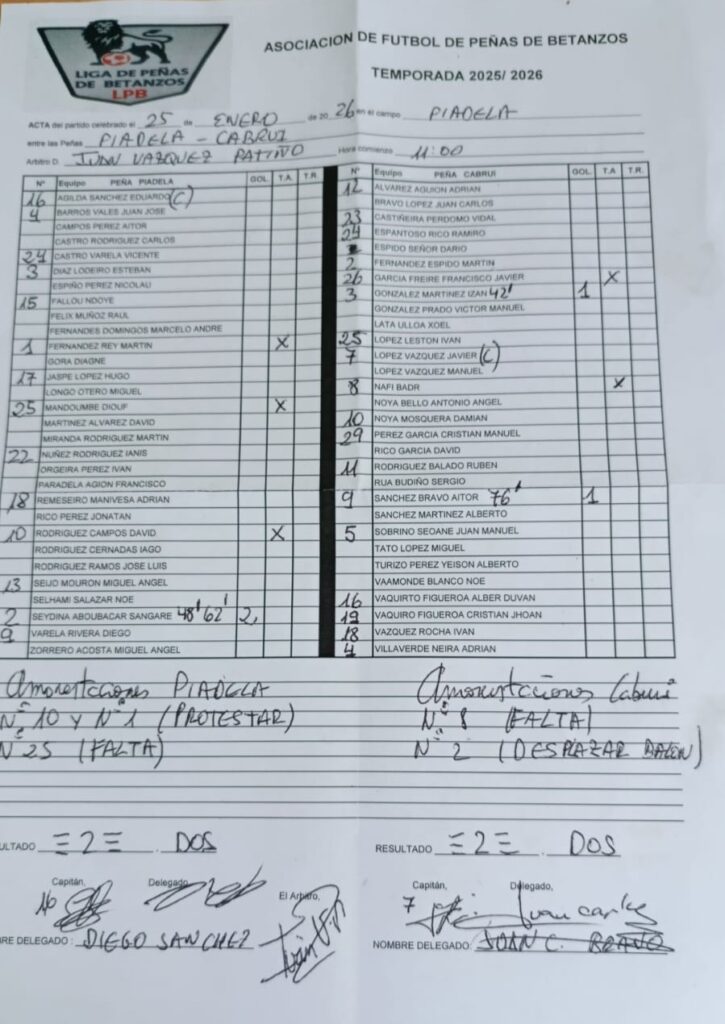 LIGA DE PEÑAS
DE BETANZOS
LPB
ASOCIACION DE FUTBOL DE PEÑAS DE BETANZOS
TEMPORADA 2025/ 2026
ACTA del partido celebrado el 25 de ENERO de 2026 en el campo PIADELA
entre las Peñas PIADELA - CABRUI
Arbitro D. JUAN VAZQUEZ PATIÑO Hora comienzo 11:00
Nº Equipo PEÑA PIADELA GOL T.A. T.R.
16 AGILDA SANCHEZ EDUARDO (C)
4 BARROS VALES JUAN JOSE
CAMPOS PEREZ AITOR
CASTRO RODRIGUEZ CARLOS
24 CASTRO VARELA VICENTE
3 DIAZ LODEIRO ESTEBAN
ESPIÑO PEREZ NICOLAU
15 FALLOU NDOYE
FELIX MUÑOZ RAUL
FERNANDES DOMINGOS MARCELO ANDRE
1 FERNANDEZ REY MARTIN X
GORA DIAGNE
17 JASPE LOPEZ HUGO
LONGO OTERO MIGUEL
25 MANDOUMBE DIOUF X
MARTINEZ ALVAREZ DAVID
MIRANDA RODRIGUEZ MARTIN
22 NUÑEZ RODRIGUEZ IANIS
ORGEIRA PEREZ IVAN
PARADELA AGION FRANCISCO
18 REMESEIRO MANIVESA ADRIAN
RICO PEREZ JONATAN
10 RODRIGUEZ CAMPOS DAVID X
RODRIGUEZ CERNADAS IAGO
RODRIGUEZ RAMOS JOSE LUIS
13 SEIJO MOURON MIGUEL ANGEL
SELHAMI SALAZAR NOE
2 SEYDINA ABOUBACAR SANGARE 48' 62' 2
9 VARELA RIVERA DIEGO
ZORRERO ACOSTA MIGUEL ANGEL
Nº Equipo PEÑA CABRUI GOL T.A. T.R.
12 ALVAREZ AGUION ADRIAN
BRAVO LOPEZ JUAN CARLOS
23 CASTIÑEIRA PERDOMO VIDAL
24 ESPANTOSO RICO RAMIRO
ESPIDO SEÑOR DARIO
2 FERNANDEZ ESPIDO MARTIN
26 GARCIA FREIRE FRANCISCO JAVIER X
3 GONZALEZ MARTINEZ IZAN 42' 1
GONZALEZ PRADO VICTOR MANUEL
LATA ULLOA XOEL
25 LOPEZ LESTON IVAN
7 LOPEZ VAZQUEZ JAVIER (C)
LOPEZ VAZQUEZ MANUEL
8 NAFI BADR X
NOYA BELLO ANTONIO ANGEL
10 NOYA MOSQUERA DAMIAN
29 PEREZ GARCIA CRISTIAN MANUEL
RICO GARCIA DAVID
11 RODRIGUEZ BALADO RUBEN
RUA BUDIÑO SERGIO
9 SANCHEZ BRAVO AITOR 76' 1
SANCHEZ MARTINEZ ALBERTO
5 SOBRINO SEOANE JUAN MANUEL
TATO LOPEZ MIGUEL
TURIZO PEREZ YEISON ALBERTO
VAAMONDE BLANCO NOE
16 VAQUIRTO FIGUEROA ALBER DUVAN
19 VAQUIRO FIGUEROA CRISTIAN JHOAN
18 VAZQUEZ ROCHA IVAN
4 VILLAVERDE NEIRA ADRIAN
Amonestaciones PIADELA
Nº 10 Y Nº 1 (PROTESTAR)
Nº 25 (FALTA)
Amonestaciones Cabrui
Nº 8 (FALTA)
Nº 2 (DESPLAZAR BALON)
ULTADO =2= DOS
RESULTADO =2= DOS
Capitán, Delegado, El Arbitro,
16
RE DELEGADO: DIEGO SANCHEZ
Capitán, Delegado,
7 Juan carlos
NOMBRE DELEGADO: JUAN C. BRAVO